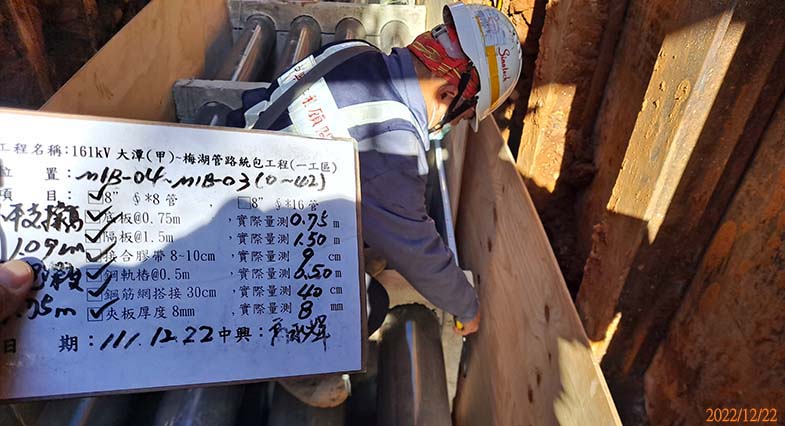 工程名稱:161kV 大潭(甲)~梅湖管路統包工程(一工區)
位 置:M1B-04~M1B-03(0~42)
項 目:✓8" §*8管 , □8" §*16管
✓底板@0.75m ,實際量測0.75 m
✓隔板@1.5m ,實際量測1.50 m
1.09m
✓接合膠帶8~10cm ,實際量測9 cm
✓鋼軌樁@0.5m ,實際量測0.50 m
✓鋼筋網搭接30cm ,實際量測40 cm
✓夾板厚度8mm ,實際量測8 mm
日 期:111.12.22中興:
2022/12/22